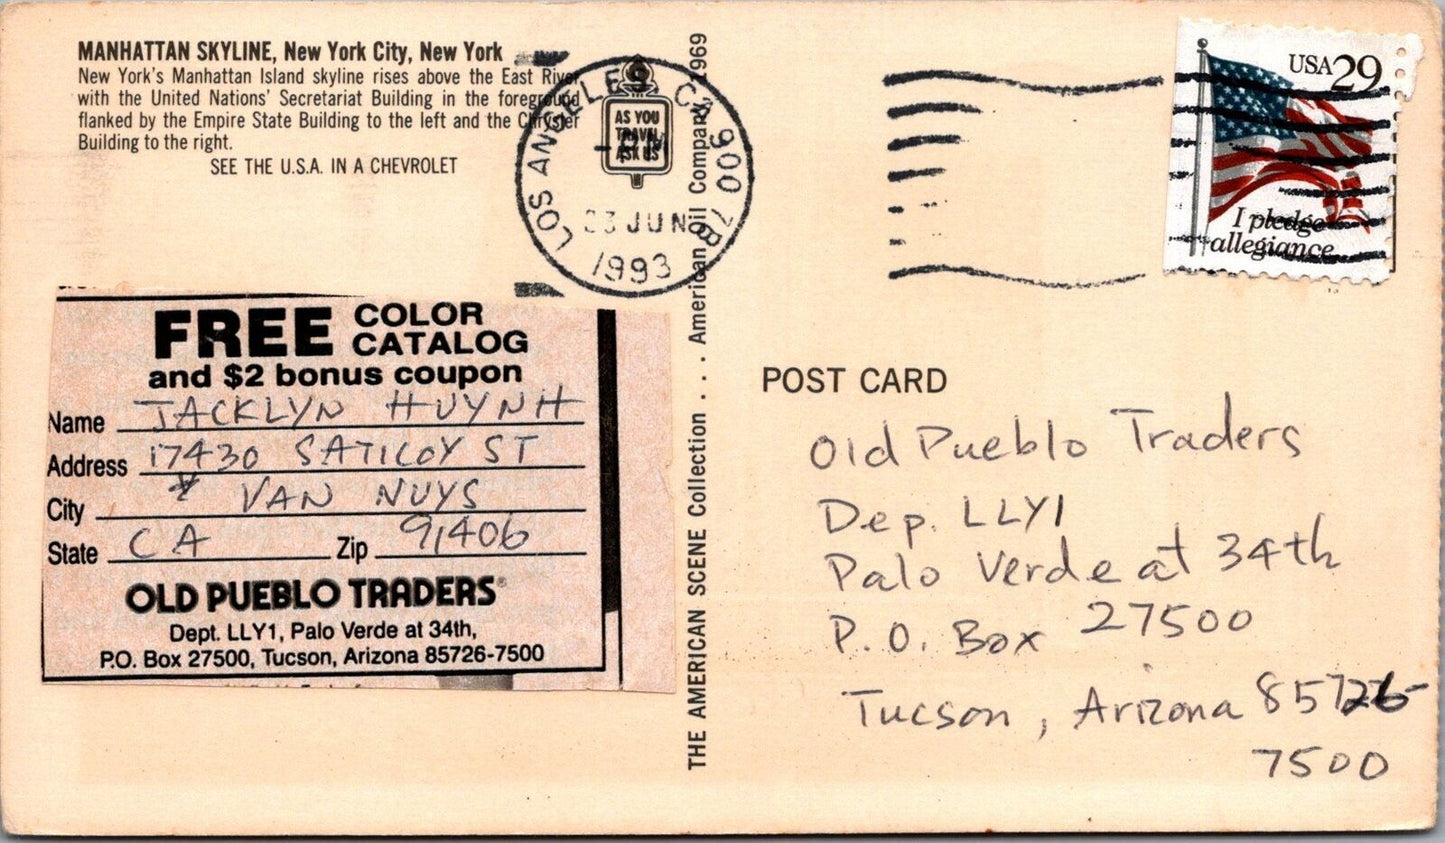 MANHATTAN SKYLINE, New York City, New York
New York's Manhattan Island skyline rises above the East River,
with the United Nations' Secretariat Building in the foreground
flanked by the Empire State Building to the left and the Chrysler
Building to the right.
SEE THE U.S.A. IN A CHEVROLET
AS YOU
TRAVEL
ASK US
LOS ANGELES CA 900 7B
23 JUN
1993
THE AMERICAN SCENE Collection . . . American Oil Company 1969
USA 29
I pledge
allegiance...
FREE COLOR CATALOG
and $2 bonus coupon
Name JACKLYN HUYNH
Address 17430 SATICOY ST
City VAN NUYS
State CA Zip 91406
OLD PUEBLO TRADERS®
Dept. LLY1, Palo Verde at 34th,
P.O. Box 27500, Tucson, Arizona 85726-7500
POST CARD
Old Pueblo Traders
Dep. LLY1
Palo Verde at 34th
P.O. Box 27500
Tucson, Arizona 85726-
7500